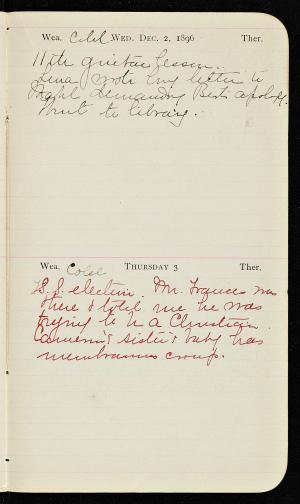 Wea. Cold WED. DEC. 2, 1896 Ther.
11th guitar lesson.
Lena wrote long letter to
Mabel demanding Bert's apology.
Went to library.
Wea. Cold THURSDAY 3 Ther.
S.S. election. Mr. Frances was
there & told me he was
trying to be a Christian.
sister's baby has
membranous croup.